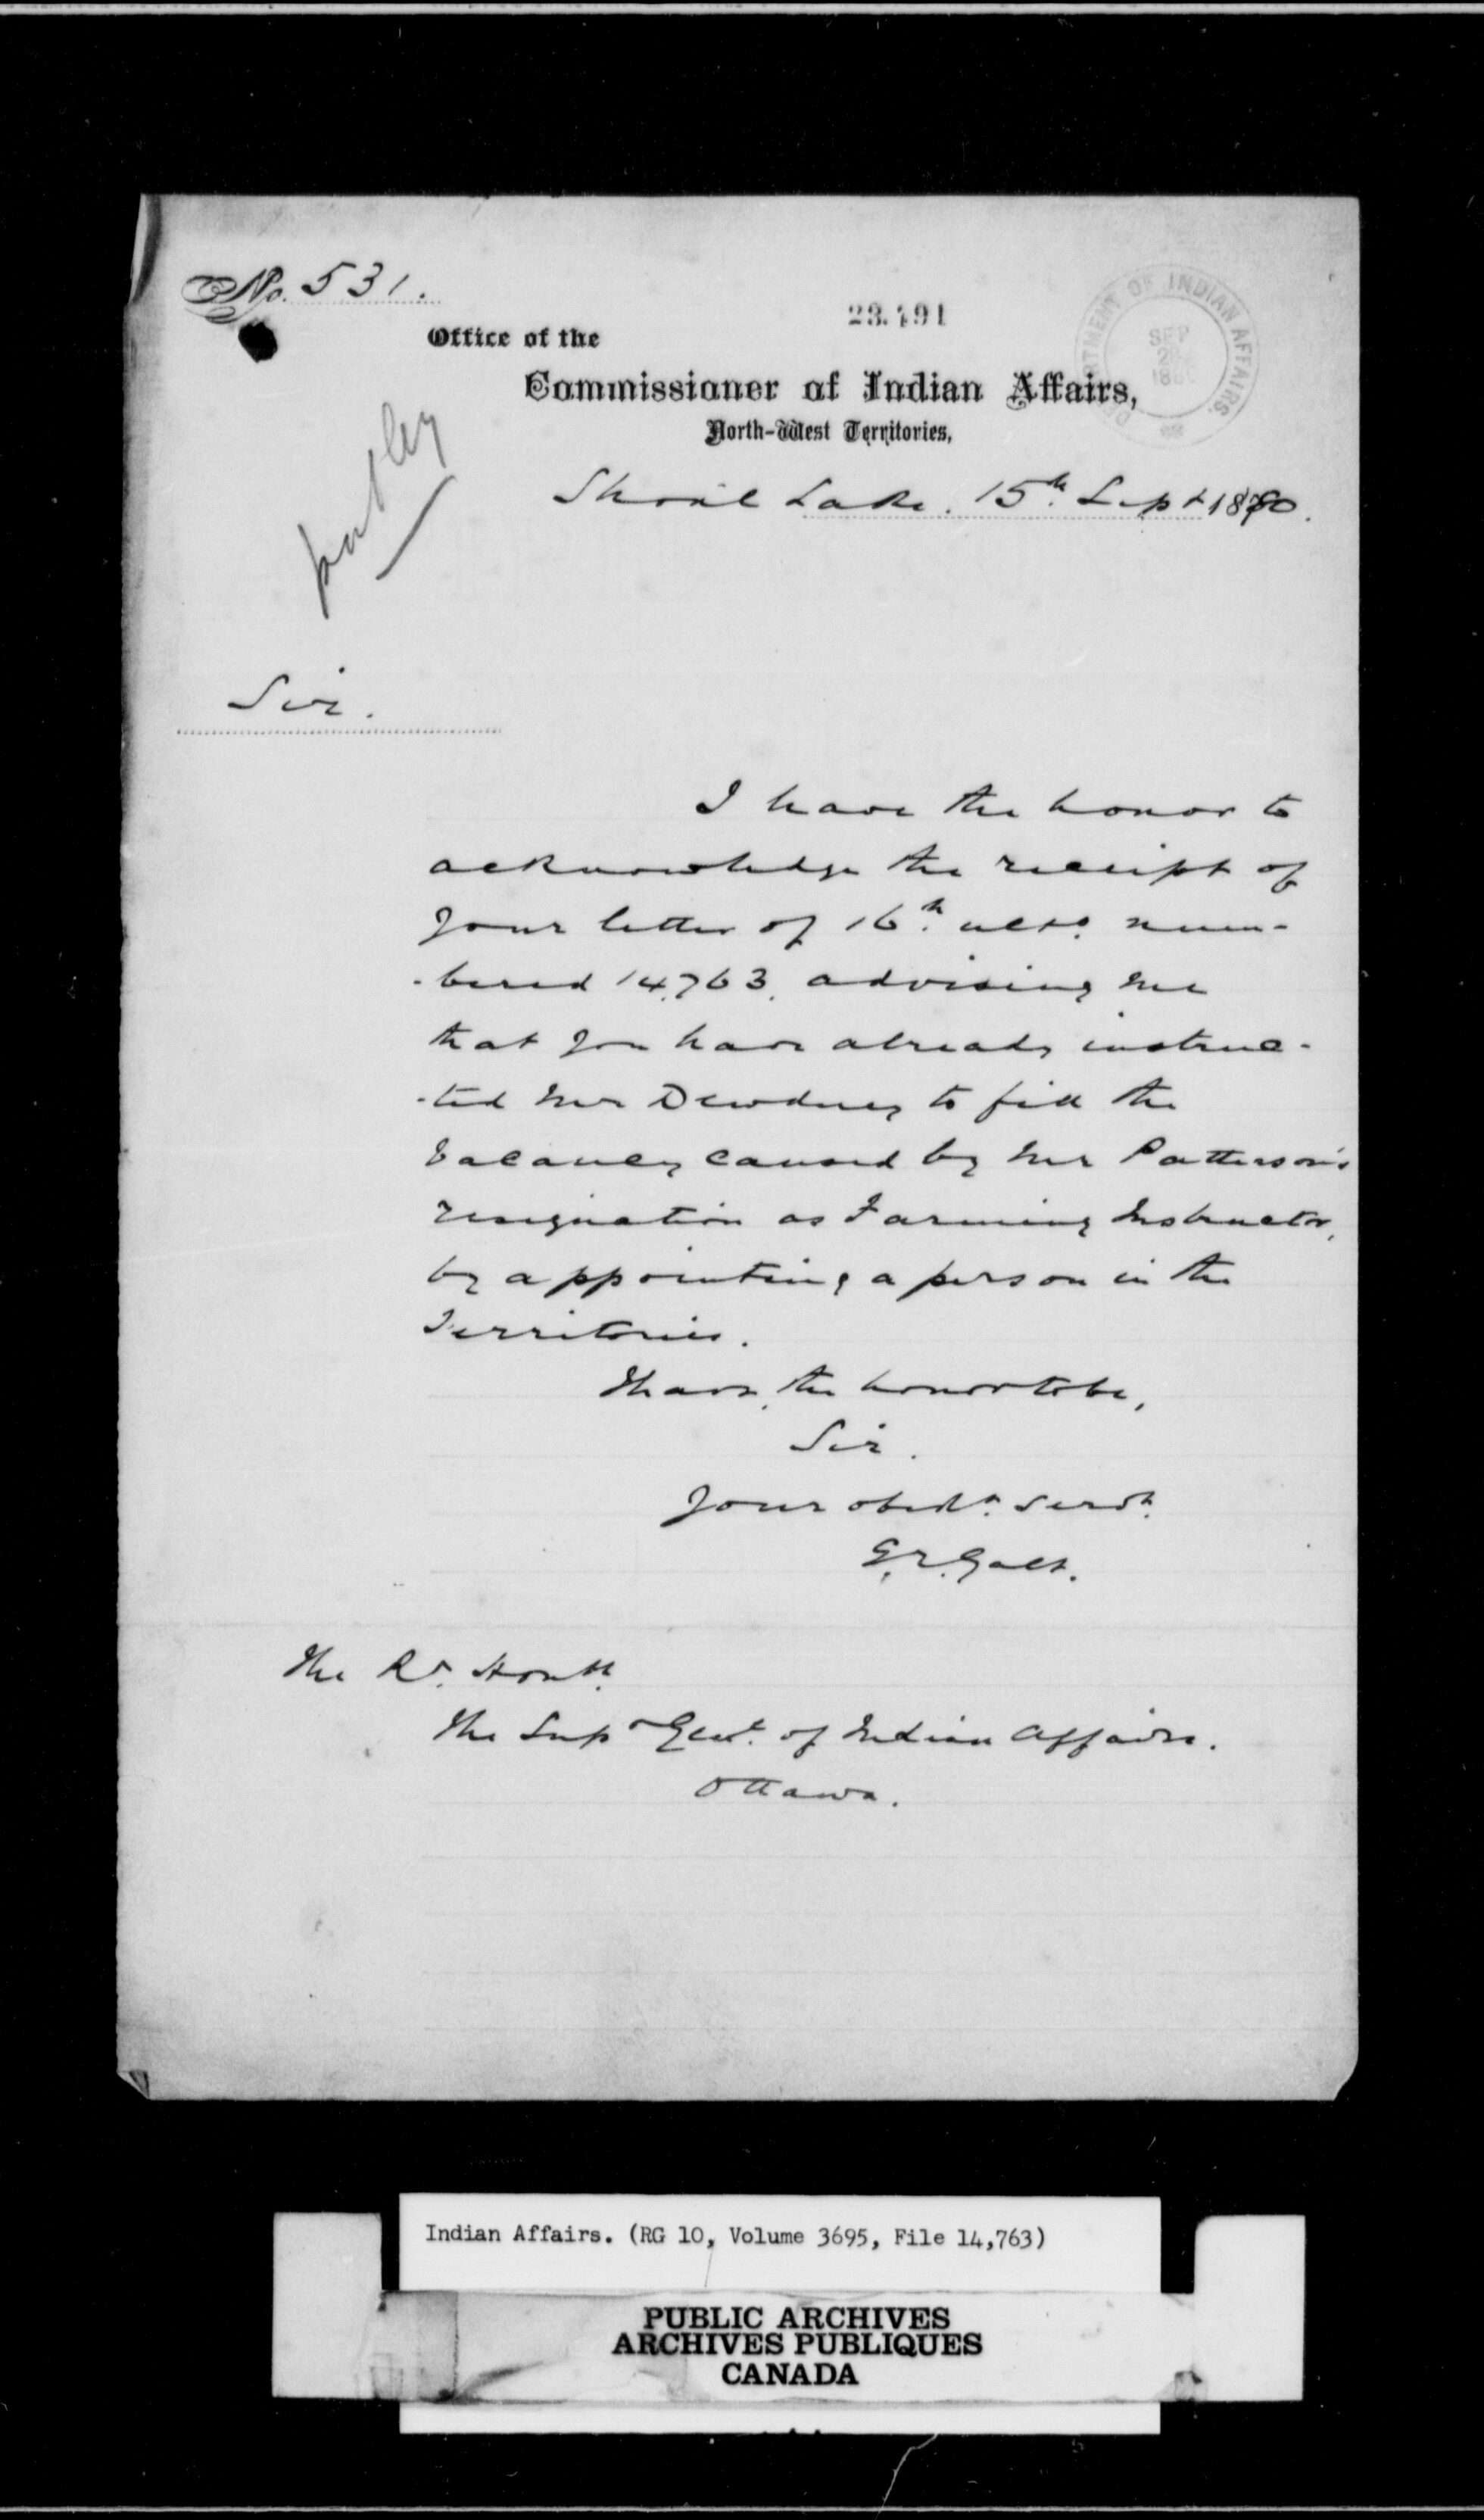 No. 531.
23.191
DEPARTMENT OF INDIAN AFFAIRS.
SEP
1880
Office of the
Commissioner of Indian Affairs,
North-West Territories,
Shoal Lake. 15th Sept 1880.
Sir.
I have the honor to
acknowledge the receipt of
your letter of 16th ulto. num-
-bered 14,763, advising me
that you have already instruc-
-ted Mr Dewdney to fill the
vacancy caused by Mr Patterson's
resignation as Farming Instructor,
by appointing a person in the
Territories.
I have the honor to be,
Sir.
Your obedt. servt.
E. T. Galt.
The Rt. Honble
The Supt Genl. of Indian Affairs.
Ottawa.
Indian Affairs. (RG 10, Volume 3695, File 14,763)
PUBLIC ARCHIVES
ARCHIVES PUBLIQUES
CANADA